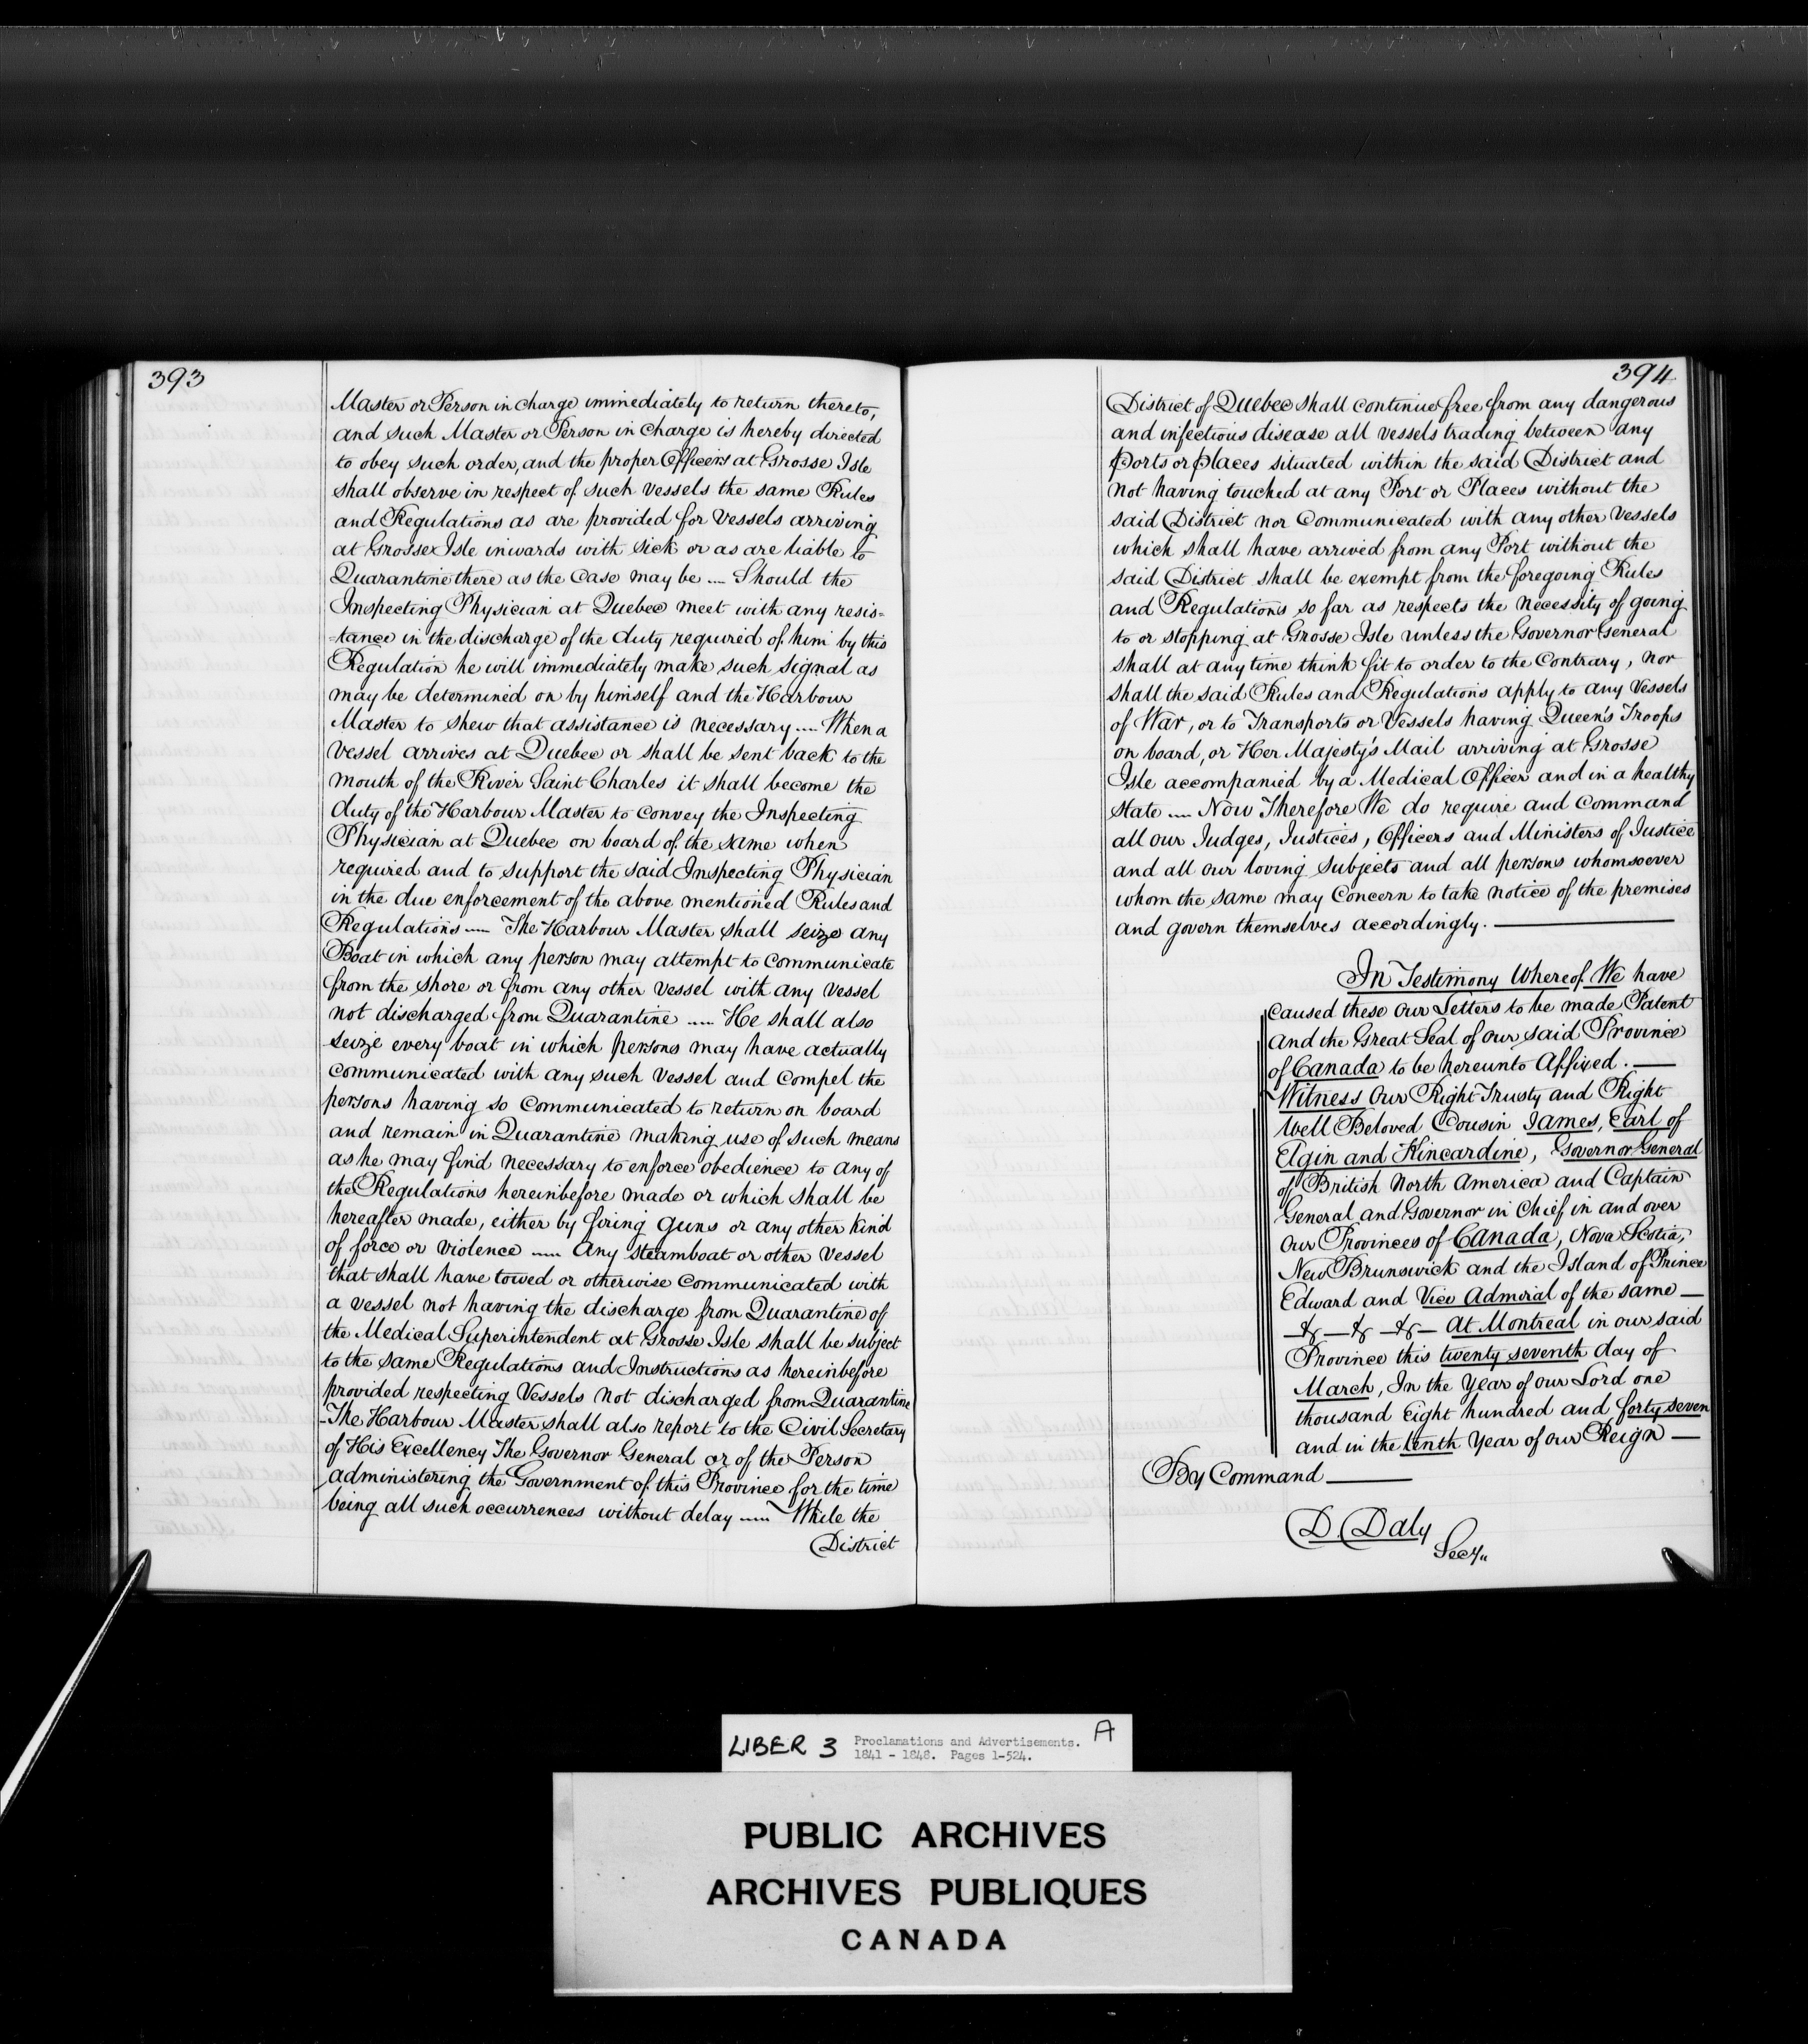 393
Master or Person in charge immediately to return thereto,
and such Master or Person in charge is hereby directed
to obey such order, and the proper Officers at Grosse Isle
shall observe in respect of such vessels the same Rules
and Regulations as are provided for Vessels arriving
at Grosse Isle inwards with sick or as are liable to
Quarantine there as the case may be .... Should the
Inspecting Physician at Quebec meet with any resis=
=tance in the discharge of the duty required of him by this
Regulation he will immediately make such signal as
may be determined on by himself and the Harbour
Master to shew that assistance is necessary .... When a
vessel arrives at Quebec or shall be sent back to the
mouth of the River Saint Charles it shall become the
duty of the Harbour Master to convey the Inspecting
Physician at Quebec on board of the same when
required and to support the said Inspecting Physician
in the due enforcement of the above mentioned Rules and
Regulations .... The Harbour Master shall seize any
Boat in which any person may attempt to communicate
from the shore or from any other vessel with any vessel
not discharged from Quarantine .... He shall also
seize every boat in which persons may have actually
communicated with any such vessel and compel the
persons having so communicated to return on board
and remain in Quarantine making use of such means
as he may find necessary to enforce obedience to any of
the Regulations hereinbefore made or which shall be
hereafter made, either by firing guns or any other kind
of force or violence .... Any steamboat or other vessel
that shall have towed or otherwise communicated with
a vessel not having the discharge from Quarantine of
the Medical Superintendent at Grosse Isle shall be subject
to the same Regulations and Instructions as hereinbefore
provided respecting Vessels not discharged from Quarantine
- The Harbour Master shall also report to the Civil Secretary
of His Excellency The Governor General or of the Person
administering the Government of this Province for the time
being all such occurrences without delay .... While the
District
394
District of Quebec shall continue free from any dangerous
and infectious disease all vessels trading between any
Ports or places situated within the said District and
not having touched at any Port or Places without the
said District nor communicated with any other vessels
which shall have arrived from any Port without the
said District shall be exempt from the foregoing Rules
and Regulations so far as respects the necessity of going
to or stopping at Grosse Isle unless the Governor General
shall at any time think fit to order to the contrary, nor
shall the said Rules and Regulations apply to any Vessels
of War, or to Transports or Vessels having Queen's Troops
on board, or Her Majesty's Mail arriving at Grosse
Isle accompanied by a Medical Officer and in a healthy
state .... Now Therefore We do require and command
all our Judges, Justices, Officers and Ministers of Justice
and all our loving subjects and all persons whomsoever
whom the same may concern to take notice of the premises
and govern themselves accordingly. —
In Testimony Whereof We have
caused these our Letters to be made Patent
and the Great Seal of our said Province
of Canada to be hereunto Affixed. —
Witness Our Right Trusty and Right
Well Beloved Cousin James, Earl of
Elgin and Kincardine, Governor General
of British North America and Captain
General and Governor in Chief in and over
our Provinces of Canada, Nova Scotia,
New Brunswick and the Island of Prince
Edward and Vice Admiral of the same —
— &c — &c — &c — At Montreal in our said
Province this twenty seventh day of
March, In the Year of our Lord one
thousand Eight hundred and forty seven
and in the tenth Year of our Reign —
By Command —
D. Daly
Secy.
LIBER 3 Proclamations and Advertisements. A
1841 - 1848. Pages 1-524.
PUBLIC ARCHIVES
ARCHIVES PUBLIQUES
CANADA